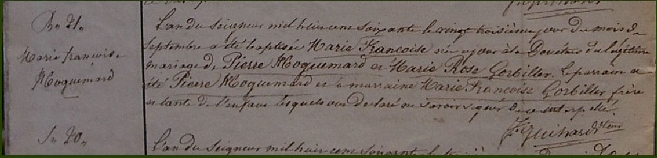 No 21.
Marie françoise
Hoquemard
L'an du Seigneur mil huit cent soixante le vingt troisième jour du mois de
Septembre a été baptisée Marie Françoise née ce jour à la Douetée du légitime
mariage de Pierre Hoquemard et Marie Rose Gorbillet. Le parrain a
été Pierre Hoquemard et la marraine Marie Françoise Gorbillet frère
et tante de l'enfant lesquels ont déclaré ne savoir signer de ce interpellés.
J. Guihard
L'an du Seigneur mil huit cent soixante le